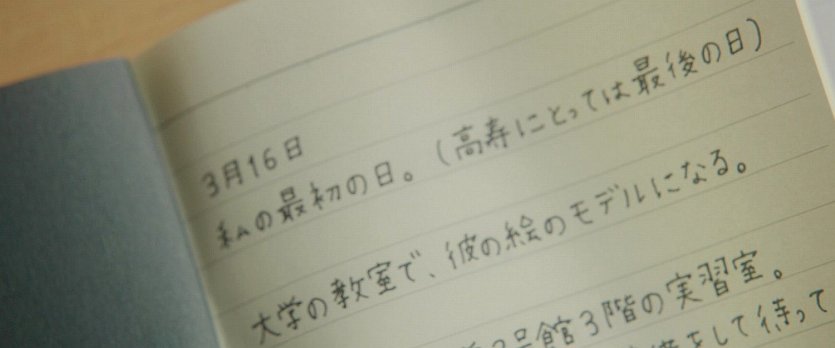 3月16日
私の最初の日。(高寿にとっては最後の日)
大学の教室で、彼の絵のモデルになる。
号館3階の実習室。
をして待って